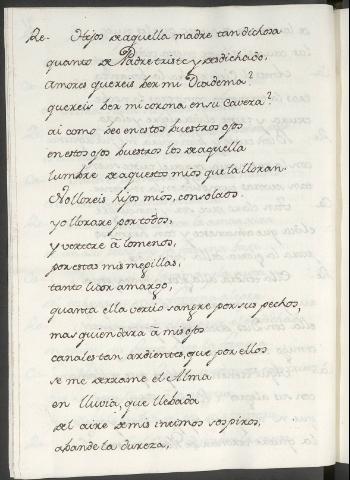 Re. Hijos de aquella madre tan dichosa
quanto de Padre triste y desdichado,
amores quereis ber mi Diadema?
quereis ber mi corona en su Cavera?
ai como beo en estos buestros ojos
en estos ojos buestros los de aquella
lumbre de aquestos mios que la lloran.
No lloreis hijos mios, consolaos.
yo llorare por todos,
y vertere a lo menos,
por estas mis megillas,
tanto licor amargo,
quanta ella vertio sangre por sus pechos,
mas quien dara a mis ojos
canales tan ardientes, que por ellos
se me derrame el Alma
en lluvia, que llebada
del aire de mis intimos sospiros,
abande la dureza,